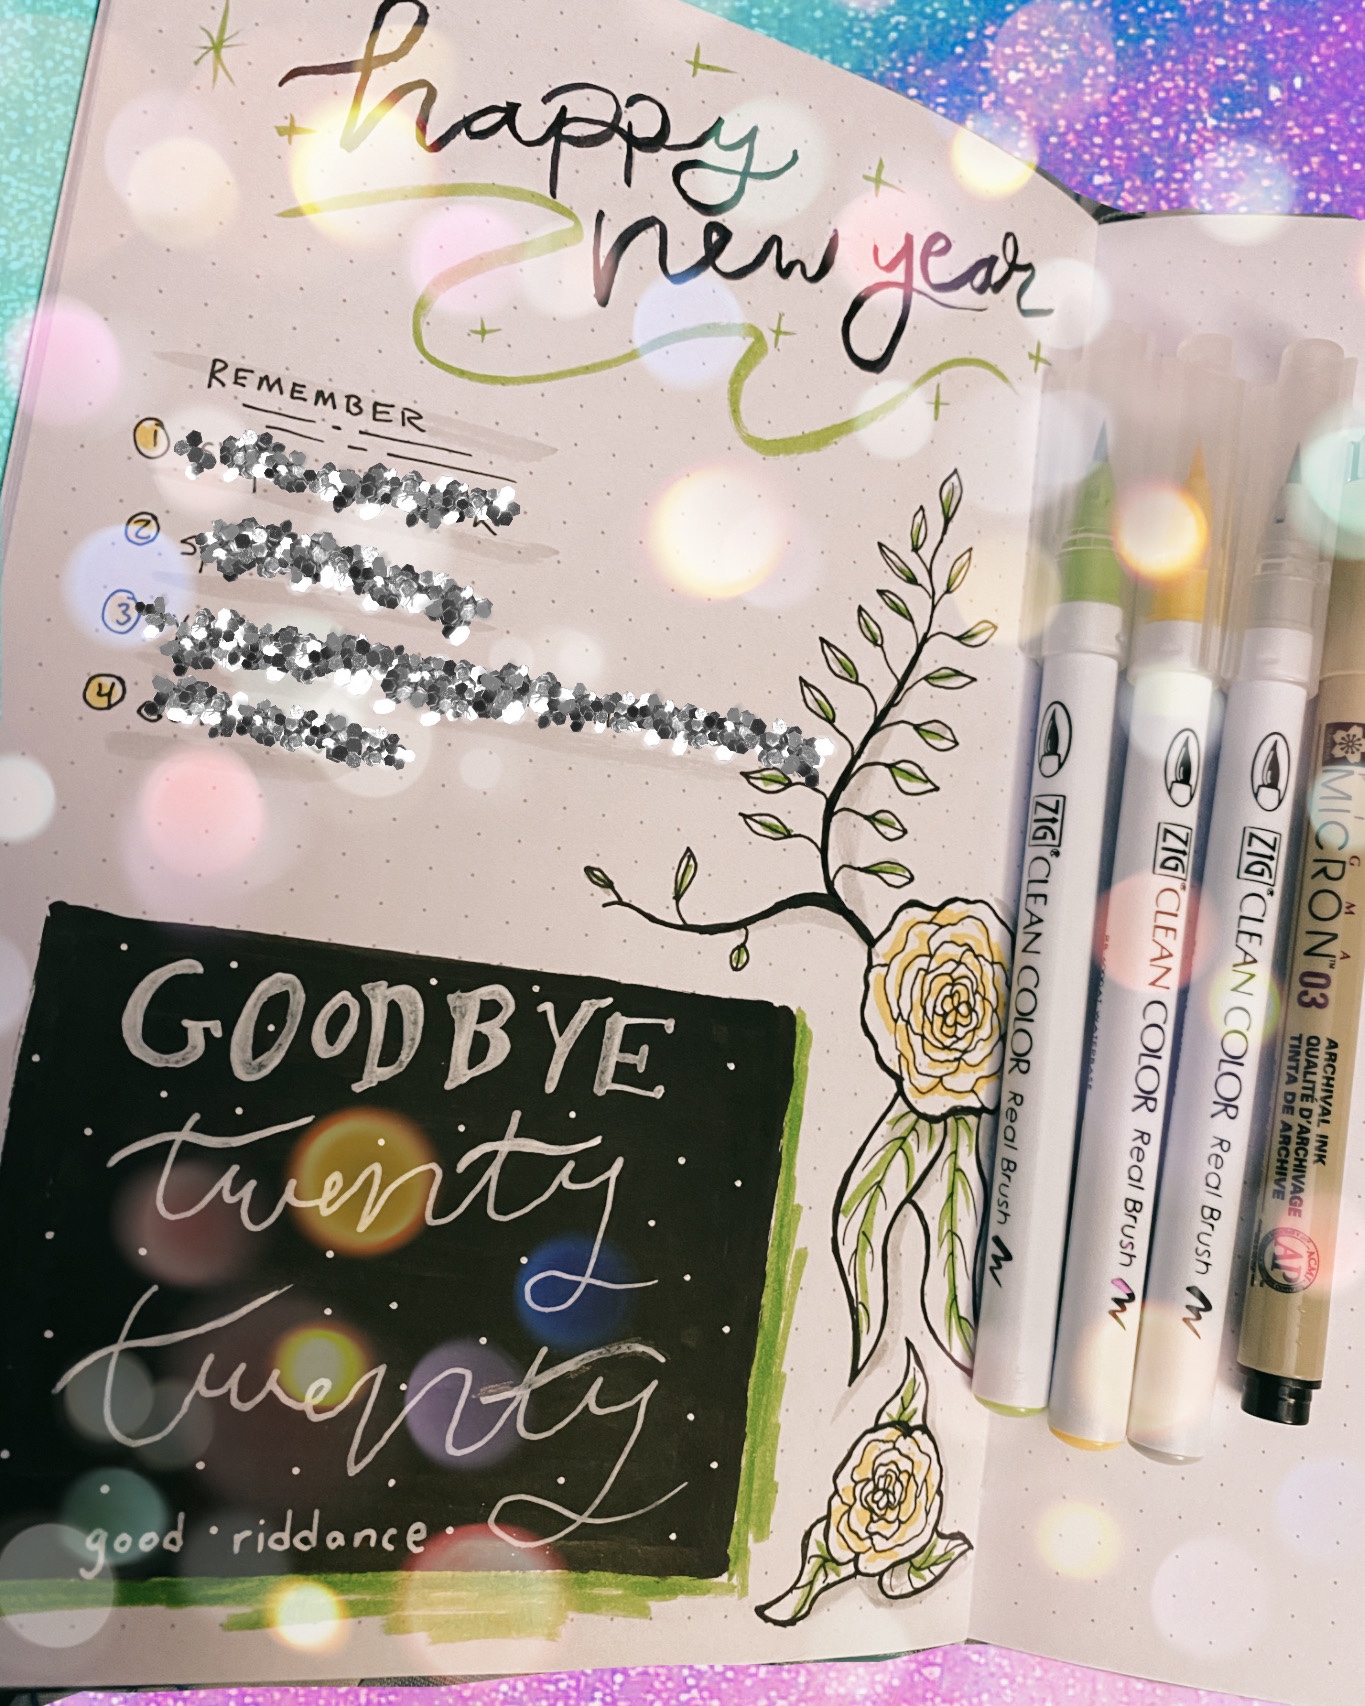 happy
new year
REMEMBER
1
2
3
4
GOODBYE
twenty
twenty
good · riddance
ZIG® CLEAN COLOR Real Brush
ZIG® CLEAN COLOR Real Brush
ZIG® CLEAN COLOR Real Brush
MICRON™ 03
ARCHIVAL INK
QUALITÉ D'ARCHIVAGE
TINTA DE ARCHIVE
AP